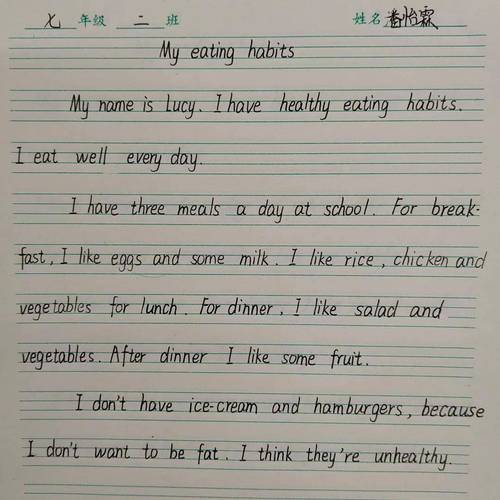 七 年级 二 班 姓名 潘怡霖
My eating habits
My name is Lucy. I have healthy eating habits.
I eat well every day.
I have three meals a day at school. For break-
fast, I like eggs and some milk. I like rice, chicken and
vegetables for lunch. For dinner, I like salad and
vegetables. After dinner I like some fruit.
I don't have ice-cream and hamburgers, because
I don't want to be fat. I think they're unhealthy.